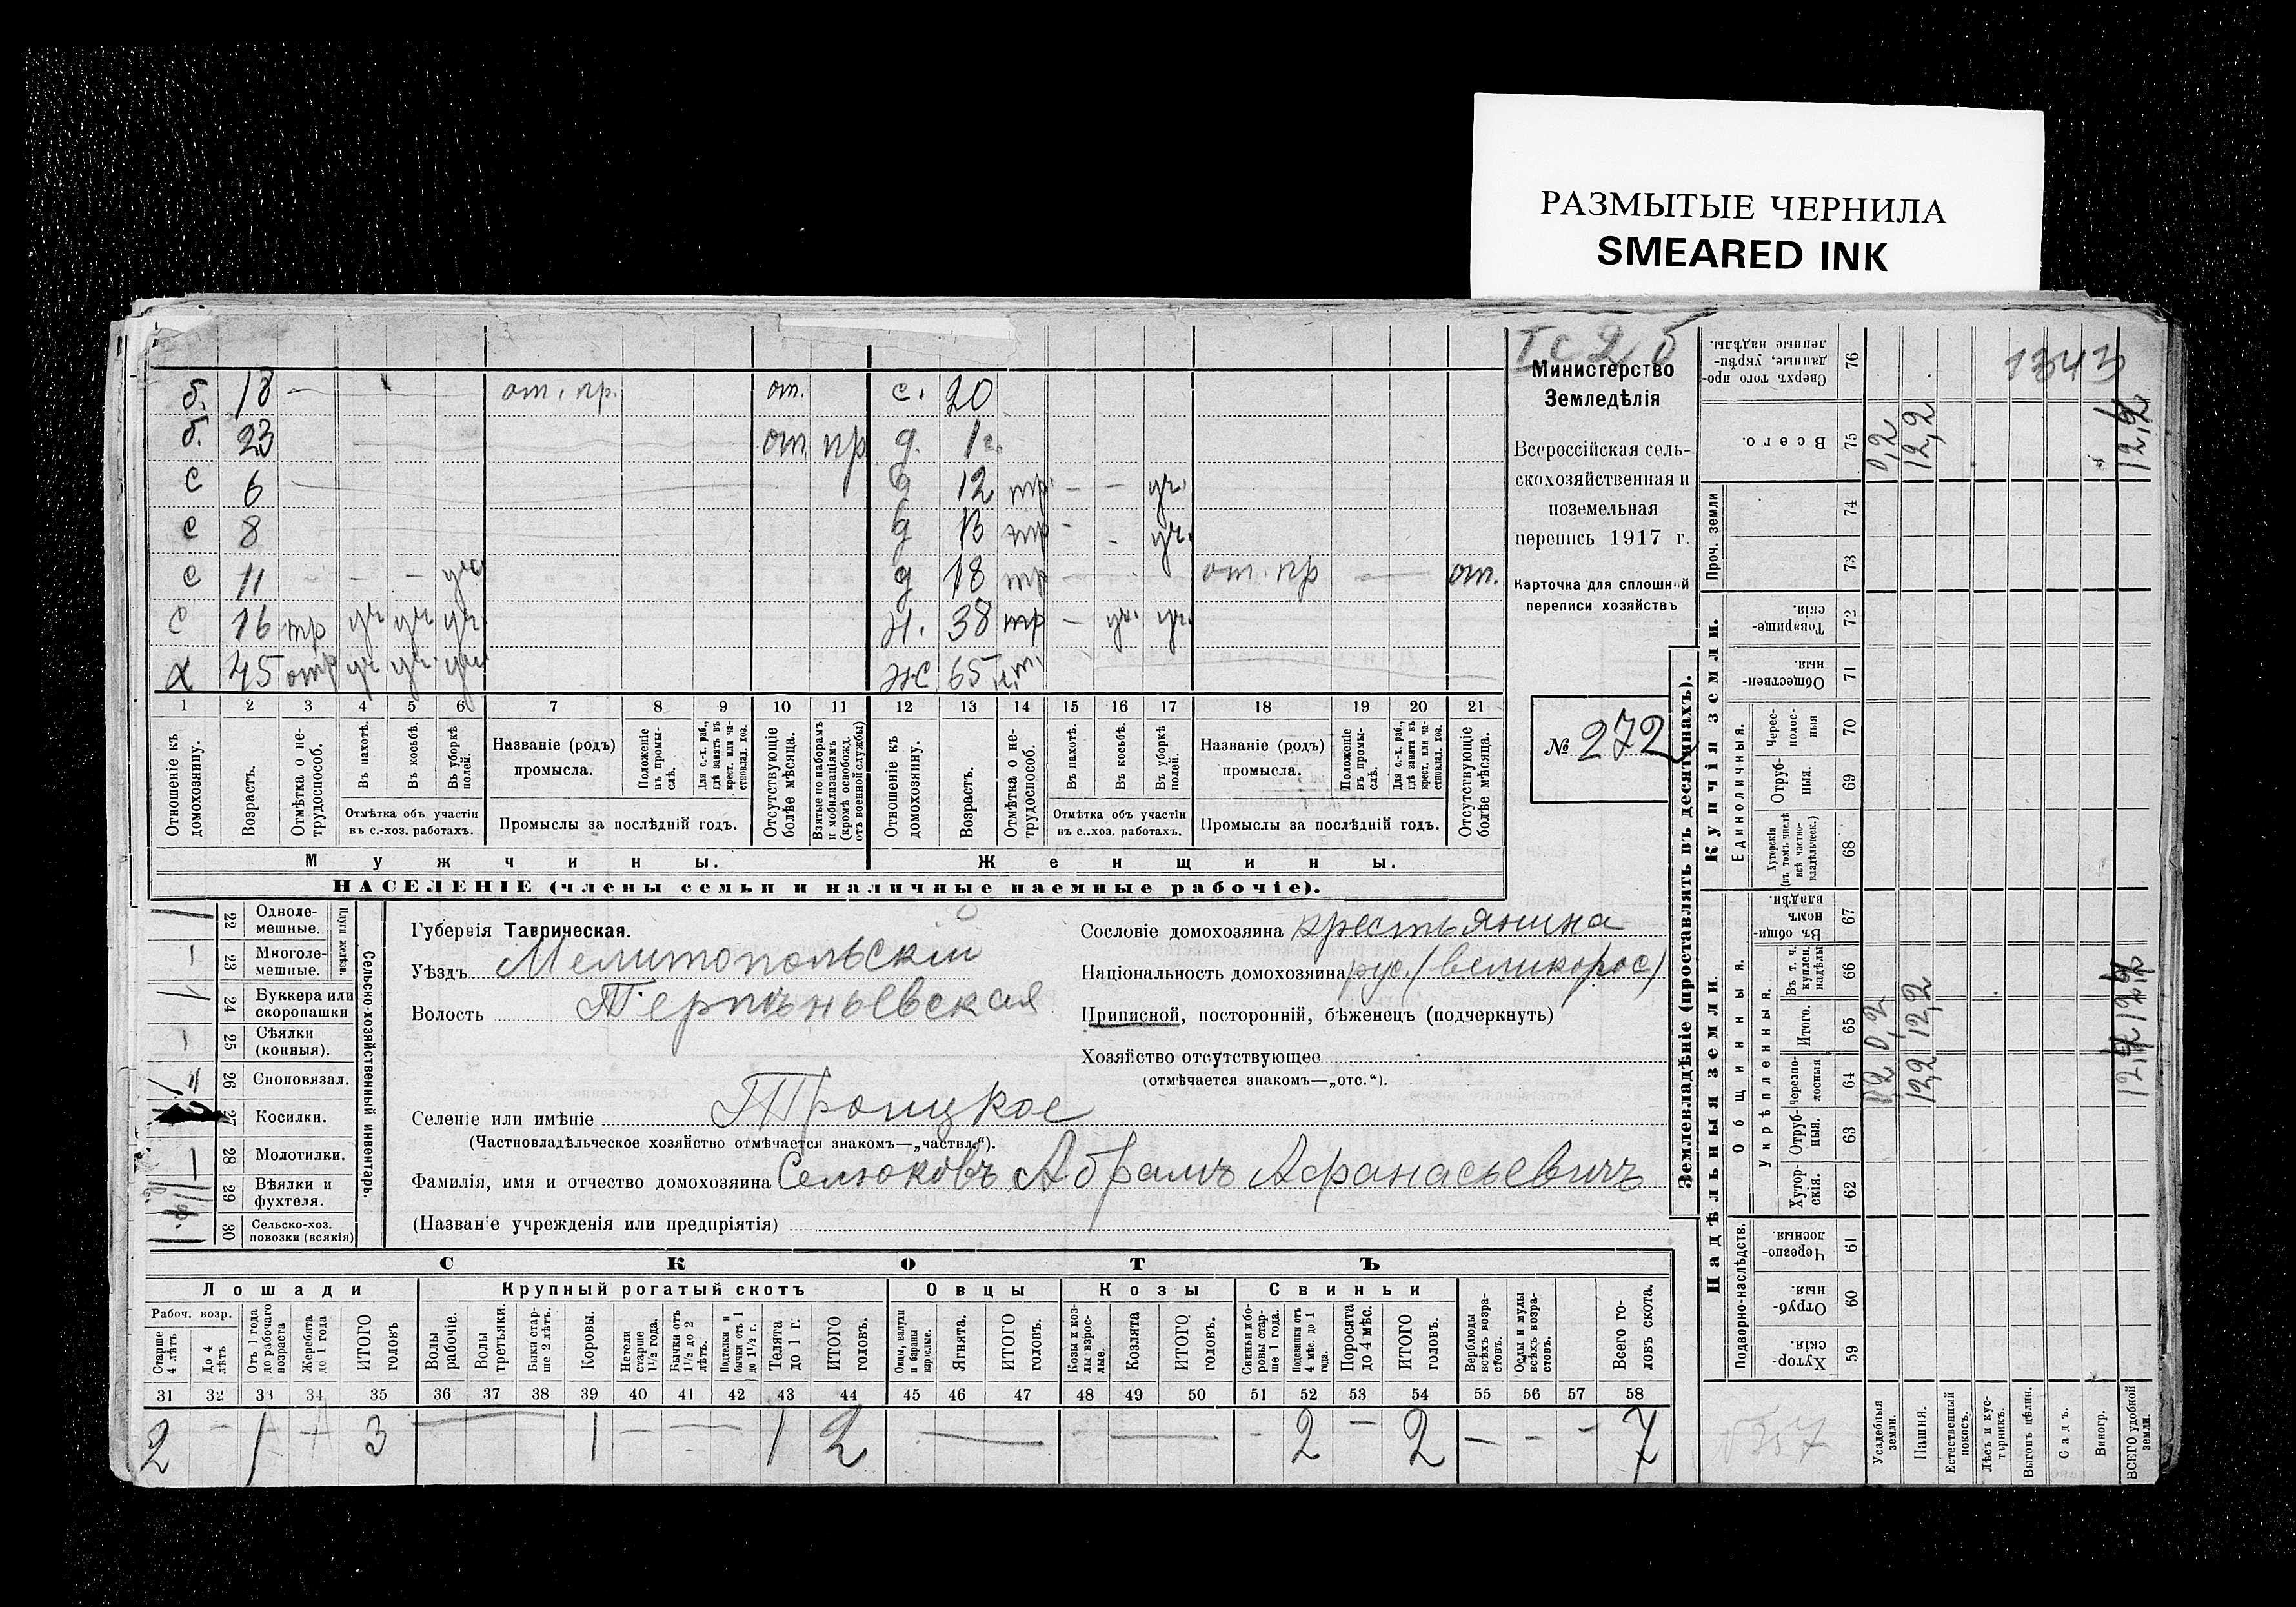 РАЗМЫТЫЕ ЧЕРНИЛА
SMEARED INK
1343
Министерство
Земледѣлія
Всероссійская сель-
скохозяйственная и
поземельная
перепись 1917 г.
Карточка для сплошной
переписи хозяйствъ
№ 272
б. 18 — от. пр. от. с. 20
б. 23 от. пр д.
с 6 д 12 тр. — — уч.
с 8 д 13 тр - - уч.
с 11 — — — уч д 18 тр — — от. пр — от.
с 16 тр уч уч уч. 38 тр — уч. уч.
х 45 отр уч уч. уч ж 65
1 2 3 4 5 6 7 8 9 10 11 12 13 14 15 16 17 18 19 20 21
Отношеніе къ домохозяину.
Возрастъ.
Отмѣтка о не-трудоспособ.
Въ пахотѣ.
Въ косьбѣ.
Въ уборкѣ полей.
Отмѣтка объ участіи
въ с.-хоз. работахъ.
Названіе (родъ)
промысла.
Положеніе въ промы-слѣ.
Для с.-х. раб., гдѣ занятъ въ крест. или ча-стновлад. хоз.
Промыслы за послѣдній годъ.
Отсутствующіе болѣе мѣсяца.
Взятые по наборамъ и мобилизаціямъ (кромѣ освобожд. отъ военной службы)
Отношеніе къ домохозяину.
Возрастъ.
Отмѣтка о не-трудоспособ.
Въ пахотѣ.
Въ косьбѣ.
Въ уборкѣ полей.
Отмѣтка объ участіи
въ с..хоз. работахъ.
Названіе (родъ)
промысла.
Положеніе въ промы-слѣ.
Для с.-х. раб., гдѣ занята въ крест. или ча-стновлад. хоз.
Промыслы за послѣдній годъ.
Отсутствующіе болѣе мѣсяца.
Мужчины. Женщины.
НАСЕЛЕНІЕ (члены семьи и наличные наемные рабочіе).
Сельско-хозяйственный инвентарь.
Плуги желѣзн.
22 Одноле-мешные.
23 Многоле-мешные.
24 Буккера или скоропашки
25 Сѣялки (конныя).
26 Сноповязал.
27 Косилки.
28 Молотилки.
29 Вѣялки и фухтеля.
30 Сельско-хоз. повозки (всякія)
Губернія Таврическая.
Уѣздъ Мелитопольскій
Волость Терпѣньевская
Селеніе или имѣніе Троицкое
(Частновладѣльческое хозяйство отмѣчается знакомъ—„частвл.“).
Фамилія, имя и отчество домохозяина Селюковъ Абрамъ Афанасьевичъ
(Названіе учрежденія или предпріятія)
Сословіе домохозяина крестьянина
Національность домохозяина рус. (великорос)
Приписной, посторонній, бѣженецъ (подчеркнуть)
Хозяйство отсутствующее
(отмѣчается знакомъ—„отс.“).
СКОТЪ
Лошади Крупный рогатый скотъ Овцы Козы Свиньи
Рабоч. возр.
Старше 4 лѣтъ
До 4 лѣтъ
Отъ 1 года до рабочаго возраста
Жеребята до 1 года
ИТОГО головъ
Волы рабочіе.
Волы третьяки.
Быки стар-ше 2 лѣтъ.
Коровы.
Нетели старше 1½ года.
Бычки отъ 1½ до 2 лѣтъ.
Подтелки и бычки отъ 1 до 1½ г.
Телята до 1 г.
ИТОГО головъ.
Овцы, валухи и бараны взрослые.
Ягнята.
ИТОГО головъ.
Козы и коз-лы взрос-лые.
Козлята
ИТОГО головъ.
Свиньи и бо-ровы стар-ше 1 года.
Подсвинки отъ 4 мѣс. до 1 года.
Поросята до 4 мѣс.
ИТОГО головъ.
Верблюды всѣхъ возра-стовъ.
Ослы и мулы всѣхъ возра-стовъ.
Всего го-ловъ скота.
31 32 33 34 35 36 37 38 39 40 41 42 43 44 45 46 47 48 49 50 51 52 53 54 55 56 57 58
2 — 1 3 — 1 — — 1 2 — — - 2 — 2 — — - 7
Землевладѣніе (проставлять въ десятинахъ).
Надѣльныя земли. Купчія земли.
Подворно-наслѣдств.
Общинныя.
Укрѣпленныя.
Единоличныя.
Проч. земли
Хутор-скія. 59
Отруб-ныя. 60
Черезпо-лосныя. 61
Хутор-скія. 62
Отруб-ныя. 63
Черезпо-лосныя 64
Итого. 65
Въ т. ч. куплен. надѣлы 66
Въ общин-номъ владѣн. 67
Хуторскія (въ томъ числѣ всѣ частно-владѣльческ.) 68
Отруб-ныя. 69
Черес-полос-ныя 70
Обществен-ныя. 71
Товарище-скія. 72
73 74
Всего. 75
Сверхъ того про-данные, укрѣп-ленные надѣлы. 76
Усадебныя земли. 0,2 0,2 0,2
Пашня. 12,2 12,2 12,2
Естественный покосъ.
Лѣсъ и кус-тарникъ.
Выгонъ цѣлин.
Садъ.
Виногр.
ВСЕГО удобной земли.